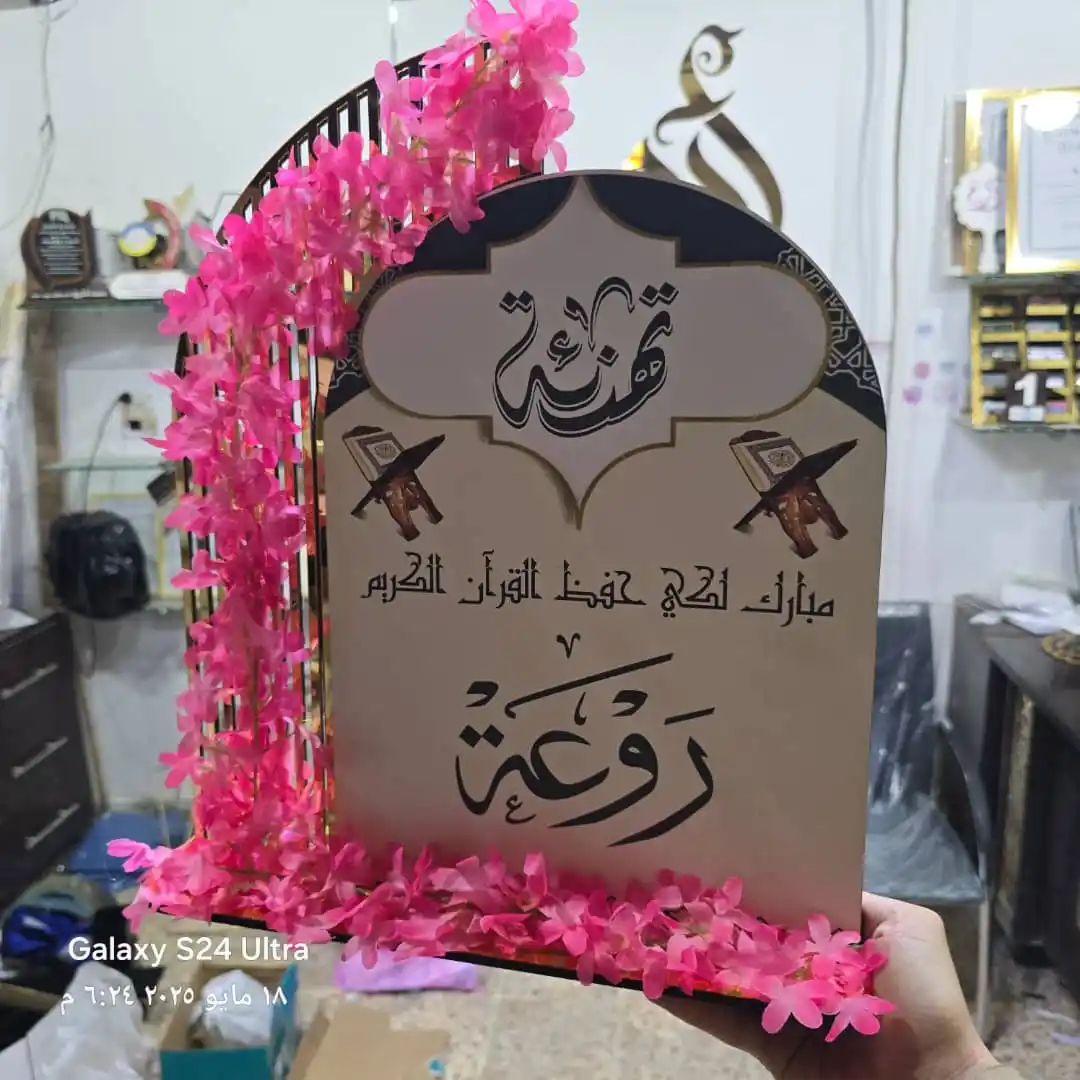 تهنئة
مبارك لكي حفظ القرآن الكريم
رَوْعَةْ
1
Galaxy S24 Ultra
١٨ مايو ٢٠٢٥ ٦:٢٤ م